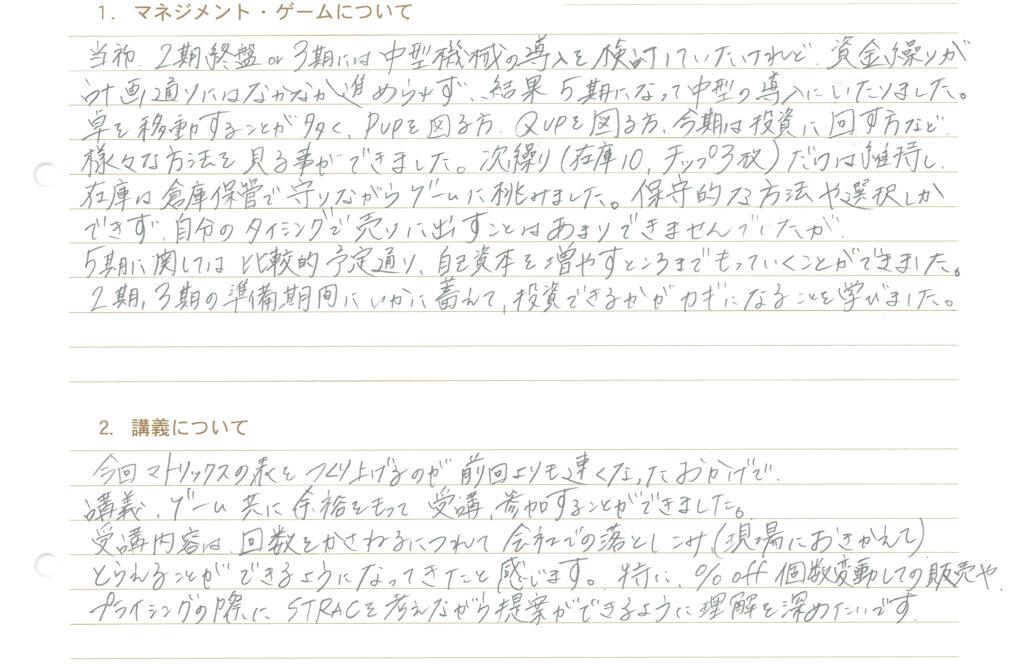 1. マネジメント・ゲームについて
当初、2期終盤or3期には中型機械の導入を検討していたけれど、資金繰りが
計画通りにはなかなか進められず、結果5期になって中型の導入にいたりました。
卓を移動することが多く、PUPを図る方、QUPを図る方、今期は投資に回す方など
様々な方法を見る事ができました。次繰り(在庫10,チップ3枚)だけは維持し、
在庫は倉庫保管で守りながらゲームに挑みました。保守的な方法や選択しか
できず、自分のタイミングで売りに出すことはあまりできませんでしたが、
5期に関しては比較的予定通り、自己資本を増やすところまでもっていくことができました。
2期,3期の準備期間にいかに蓄えて、投資できるかがカギになることを学びました。
2. 講義について
今回マトリックスの表をつくり上げるのが前回よりも速くなったおかげで、
講義、ゲーム共に余裕をもって受講、参加することができました。
受講内容は、回数をかさねるにつれて会社での落としこみ(現場におきかえて)
とらえることができるようになってきたと感じます。特に、%off個数変動しての販売や、
プライシングの際に STRACを考えながら提案ができるように理解を深めたいです。